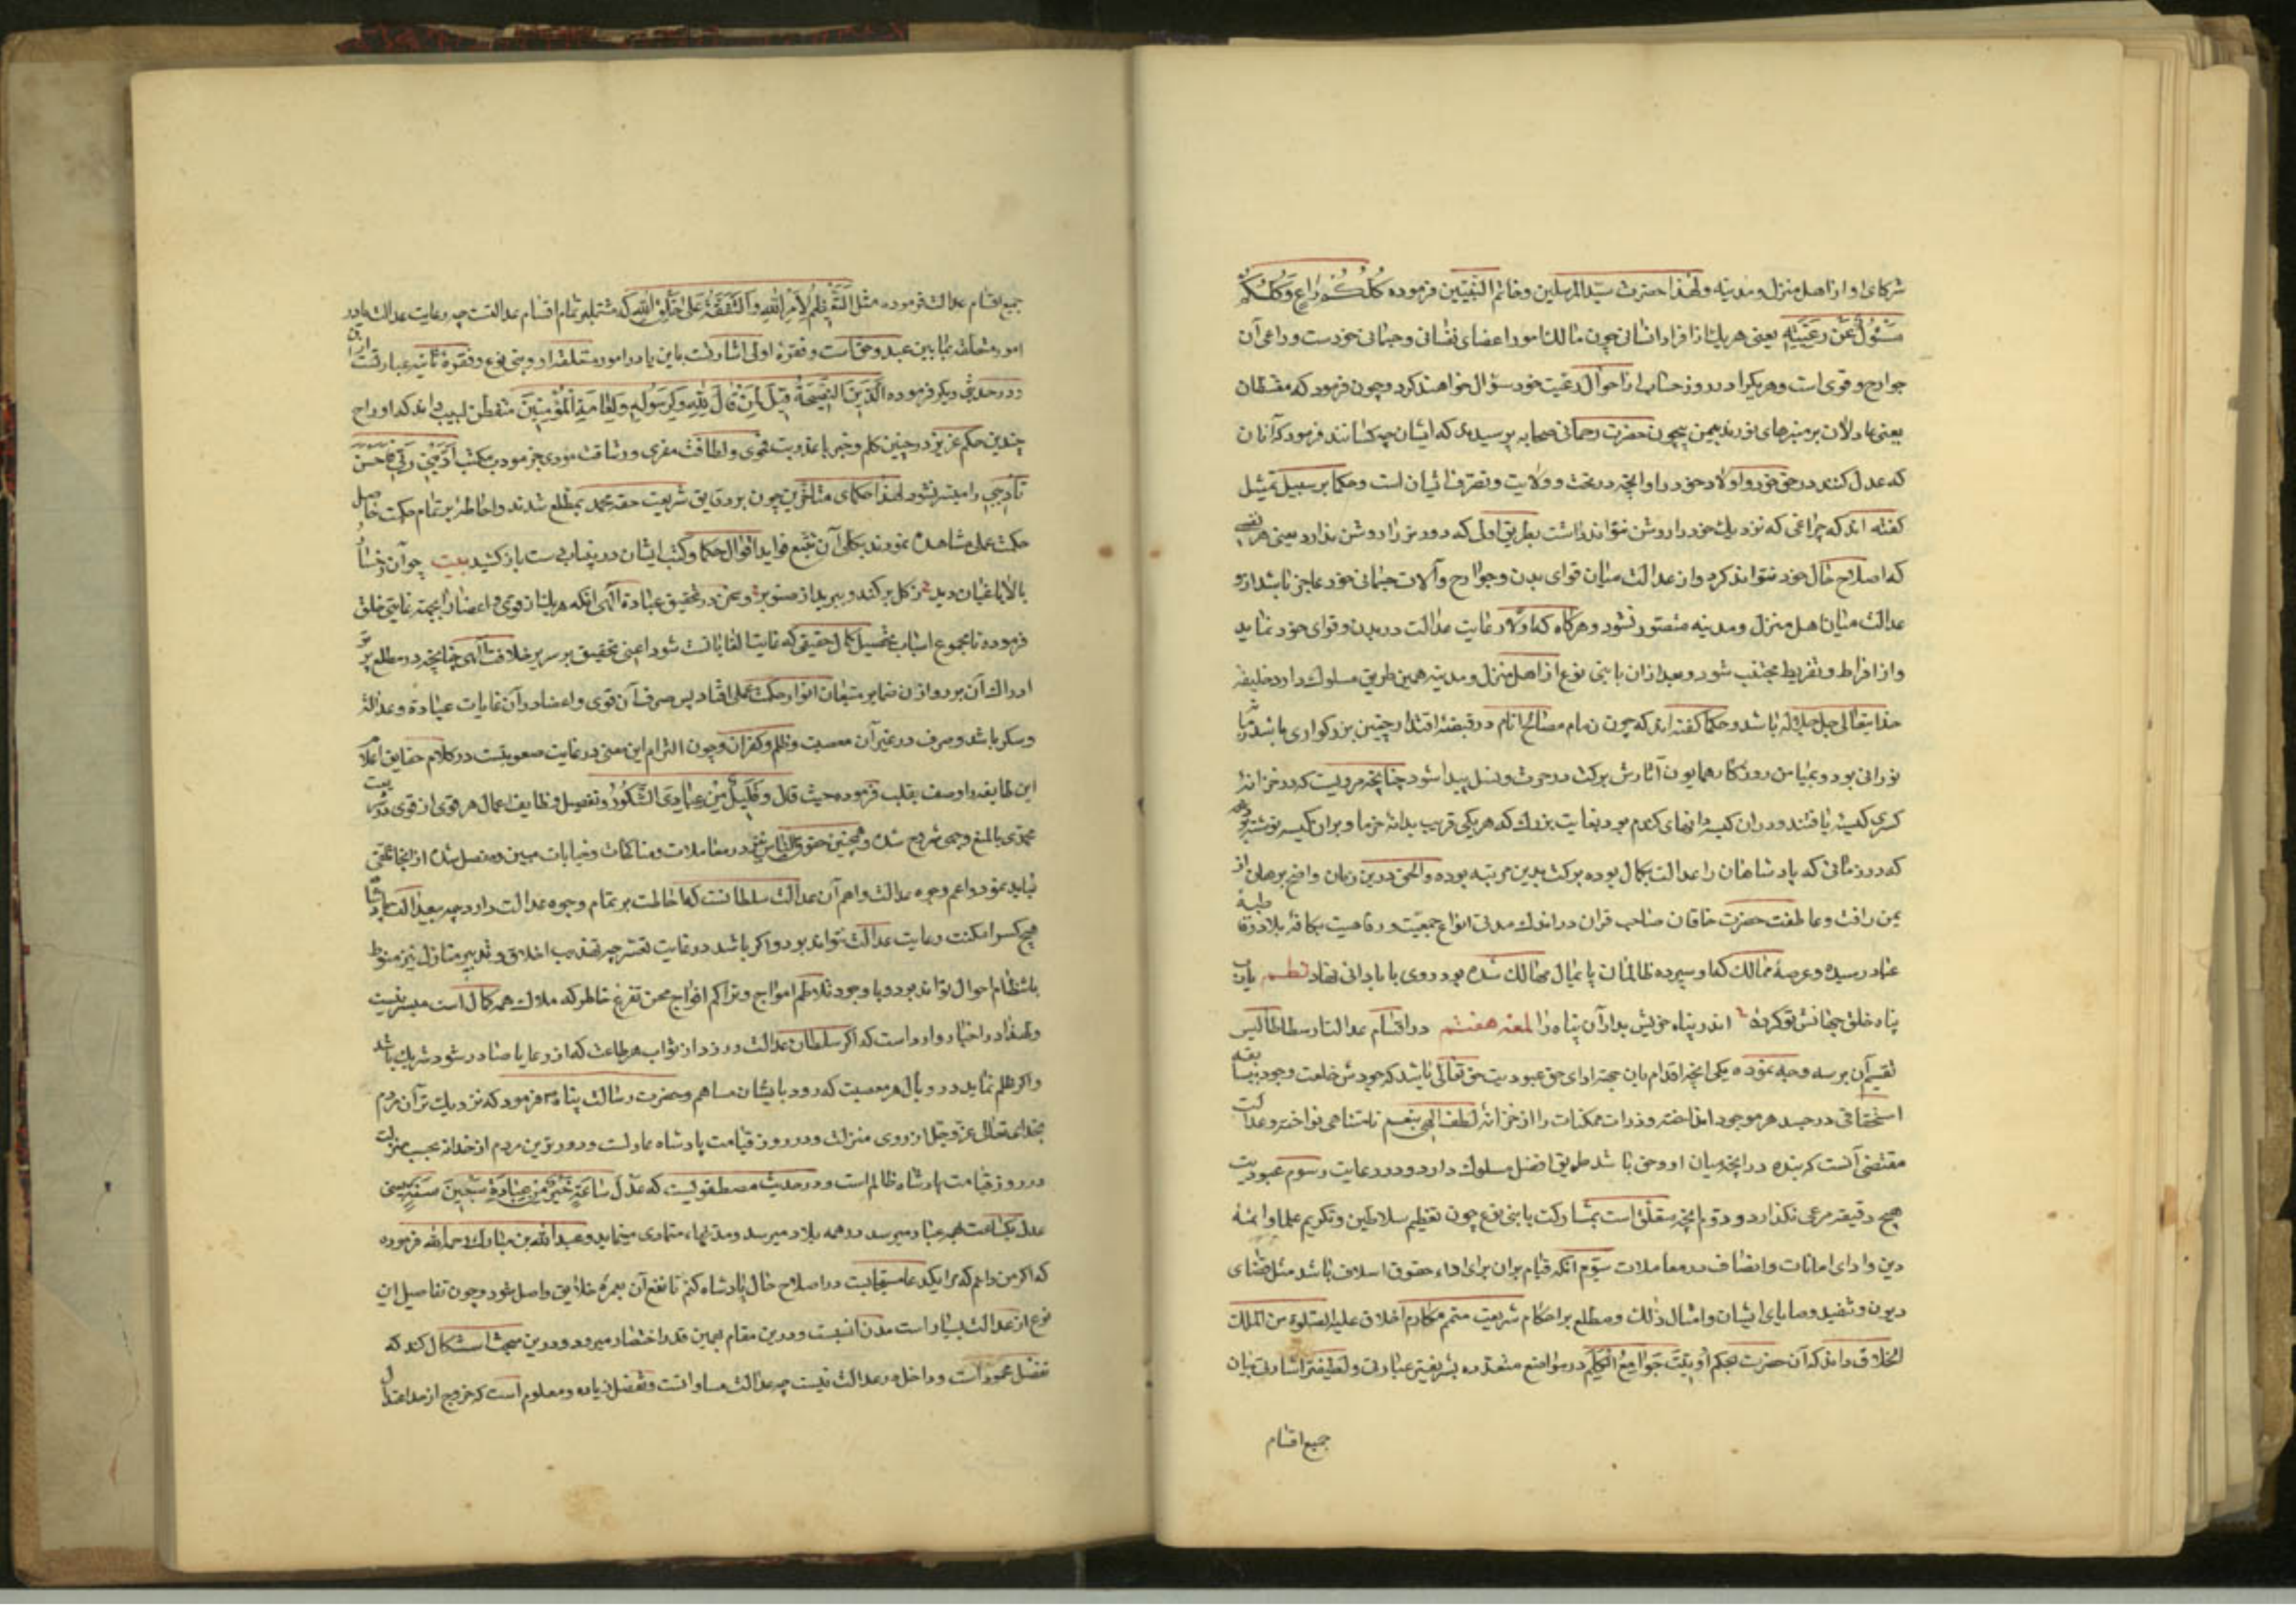 شرکای او از اهل منزل و مدینه و لهذا حضرت سید المرسلین و خاتم النبیین فرموده کُلُّکُم راعٍ وَکُلُّکُم
مَسْئُولٌ عَن رَعِیَّتِهِ یعنی هر یک از افراد انسانی چون مالک امور اعضای نفسانی و جسمانی خودست و راعی آن
جوارح و قوی است و هر یکرا در روز حساب از احوال رعیت خود سؤال خواهند کرد و چون فرمود که مقسطان
یعنی عادلان بر منبرهای نورند بیمین حضرت رحمانی صحابه پرسیدند که ایشان چه کسانند فرمود که آنان
که عدل کنند در حق خود و اولاد خود و آنچه در تحت ولایت و تصرف ایشان است و حکما بر سبیل تمثیل
گفته اند که چراغی که نزدیک خود را روشن نتواند داشت بطریق اولی که دورتر را روشن ندارد یعنی هر نفسی
که اصلاح حال خود نتواند کرد و از عدالت میان قوای بدن و جوارح و آلات جسمانی خود عاجز باشد ازو
عدالت میان اهل منزل و مدینه متصور نشود و هرگاه که اولا رعایت عدالت در بدن و قوای خود نماید
و از افراط و تفریط مجتنب شود و بعد ازان با بنی نوع از اهل منزل و مدینه همین طریق مسلوک دارد خلیفه
خدایتعالی جل جلاله باشد و حکما گفته اند که چون زمام مصالح انام در قبضهٔ اقتدار چنین بزرگواری باشد زمان
نورانی بود و بمیامن روزگار همایون آثارش برکت در حرث و نسل پیدا شود چنانچه مرویست که در خزانهٔ
کسری کیسه یافتند و دران کیسه دانهای گندم بود بغایت بزرگ که هر یکی قریب بدانه خرما و بران کیسه نوشته بود
که در زمانی که پادشاهان را عدالت بکمال بوده برکت بدین مرتبه بوده و الحق درین زمان واضح برهان از
یمن رافت و عاطفت حضرت خاقان صاحب قران در اندک مدتی انواع جمعیت و رفاهیت بکافهٔ بلاد و طبقهٔ
عباد رسیده و عرصهٔ ممالک که او سپرده ظالمان پایمال مهالک شده بود روی بابادانی نهاد نظم یارب
پناه خلق جهانش تو کردهٔ اندر پناه خویش بدار آن پناه را لمعه هفتم در اقسام عدالت ارسطاطالیس
تقسیم آن بر سه وجه نموده یکی آنچه اقدام بآن بجهة ادای حق عبودیت حق تعالی باشد که جودش خلعت وجود بیسابقه
استحقاقی در جسد هر موجود انداخته و ذرات ممکنات را از خزانهٔ لطف الهی بنعیم نامتناهی نواخته و عدالت
مقتضی آنست که بنده در آنچه میان او و حق باشد طریق افضل مسلوک دارد و در رعایت رسوم عبودیت
هیچ دقیقه مرعی نگذارد و دوم آنچه متعلق است بمشارکت با بنی نوع چون تعظیم سلاطین و تکریم علما و ائمهٔ
دین و ادای امانات و انصاف در معاملات سیوم آنکه قیام بران برای اداء حقوق اسلاف باشد مثل قضای
دیون و تنفیذ وصایای ایشان و امثال ذلک و مطلع بر احکام شریعت متمم مکارم اخلاق علیه الصلوة من الملک
الخلاق داند که آن حضرت بحکم اُوتِیتُ جَوَامِعَ الْکَلِم در مواضع متعدده بشریفتر عبارتی و لطیفتر اشارتی بیان
جمیع اقسام
جمیع اقسام عدالت فرموده مثل التعظیم لِأمرِ اللهِ وَالشَّفَقَةُ عَلی خَلْقِ اللهِ که مشتملبر تمام اقسام عدالتست چه رعایت عدالت یا در
امور متعلقه بمابین عبد و حق است و فقرهٔ اولی اشارتست باین یا در امور متعلقه او و بنی نوع و فقرهٔ ثانیه عبارتست ازان
و در حدیثی دیگر فرموده اَلدِّینُ النَّصِیحَةُ قِیلَ لِمَنْ قَالَ لِلّهِ وَلِرَسُولِهِ وَلِعَامَّةِ الْمُؤْمِنِینَ متفطن لبیب داند که ادراج
چندین حکم عزیز در چنین کلم وجیز با عذوبت فحوی و لطافت مغزی و رشاقت مؤدی جز مؤدب مکتب أدَّبَنِی رَبِّی فَاَحْسَنَ
تَأدِیبِی را میسر نشود لهذا حکمای متأخرین چون بر دقایق شریعت حقهٔ محمدی مطلع شدند و احاطهٔ بر تمام حکمت حاصل
حکمت عملی مشاهده نمودند بکلی آن تتبع فواید اقوال حکما و کتب ایشان درینباب دست باز کشیدند بیت چو آن رخسار
بالا باغبان دید ز گل برکند و ببرید از صنوبر و سخن در تحقیق عبادة الهی آنکه هر یک از قوی و اعضا را بجهة غایتی خلق
فرموده تا مجموع اسباب تحصیل کمال حقیقی که غایت الغایاتست شود اعنی تحقیق بر سریر خلافت الهی چنانچه در مطلع پرتو
ادراک آن بر روازن ضمایر متتبعان انوار حکمت عملی افتاد پس صرف آن قوی و اعضا در آن غایات عبادة و عدالة
و شکر باشد و صرف در غیر آن معصیت و ظلم و کفران و چون التزام این معنی در غایت صعوبتست در کلام حقایق اعلام
این طایفه را وصف بقلت فرموده حیث قال وَقَلِیلٌ مِنْ عِبَادِیَ الشَّکُورُ و تفصیل وظایف اعمال هر قوی از قوی در شریعت
محمدی بابلغ وجهی مشروح شده و همچنین حقوق الناس در معاملات و مناکحات و جنایات مبین و مفصل شده از انجا تلقی
باید نمود و اعم وجوه عدالت و اهم آن عدالت سلطانست که احاطت بر تمام وجوه عدالت دارد چه بیعدالت پادشاه
هیچ کس را مکنت رعایت عدالت نتواند بود و اگر باشد در غایت تعسر چه تهذیب اخلاق و تدبیر منازل نیز منوط
بانتظام احوال تواند بود و با وجود تلاطم امواج و تراکم افواج محن تفرغ خاطر که ملاک همه کمال است میسر نیست
و لهذا در اخبار وارد است که اگر سلطان عدالت ورزد از ثواب هر طاعت که از رعایا صادر شود شریک باشد
و اگر ظلم نماید در وبال هر معصیت که رود بایشان مساهم و حضرت رسالت پناه فرمود که نزدیک ترین مردم
بخدای تعالی عز و جل از روی منزلت در روز قیامت پادشاه عادلست و دورترین مردم از خدا بحسب منزلت
در روز قیامت پادشاه ظالم است و در حدیث مصطفویست که عَدْلُ سَاعَةٍ خَیْرٌ مِن عِبَادَةِ سَبْعِینَ سَنَةٍ یعنی
عدل یکساعت بهمه عباد میرسد و در همه بلاد میرسد و مدتها متمادی مینماید و عبد الله بن مبارک رحمه الله فرموده
که اگر من دانم که مرا یکدعا مستجابست در اصلاح حال پادشاه کنم تا نفع آن بعمرهٔ خلایق واصل شود و چون تفاصیل این
نوع از عدالت بسیار است مدن انسبست و درین مقام بهمین قدر اختصار میرود و درین مبحث استشکال کند که
تفضل محمودست و داخل در عدالت نیست چه عدالت مساواتست و تفضل زیاده و معلوم است که خروج از حد اعتدال